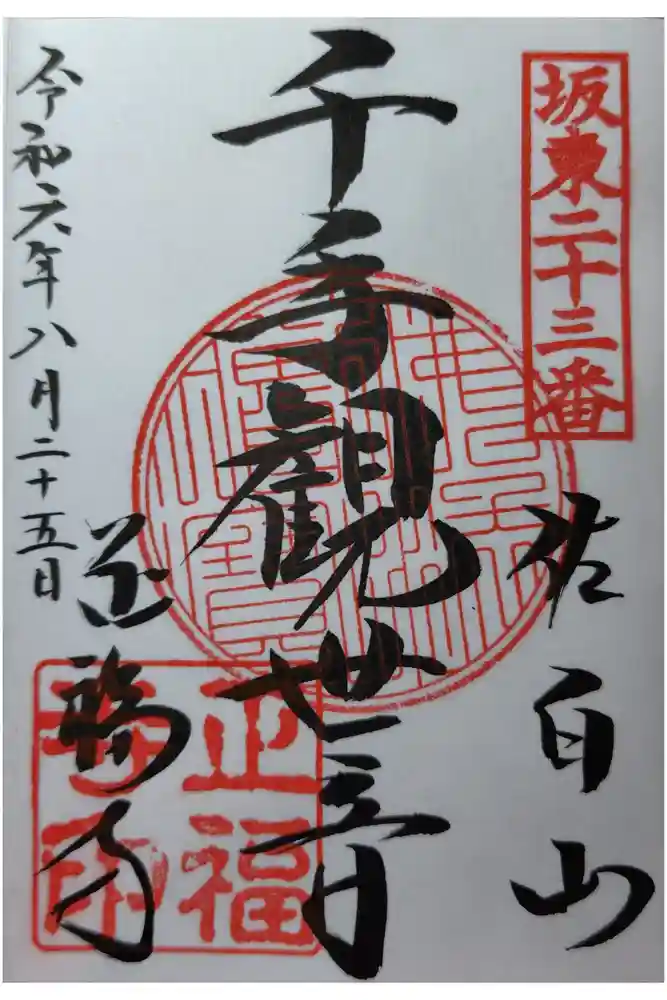 坂東二十三番
佐白山
千手観世音
正福寺
令和六年八月二十五日
正福寺印